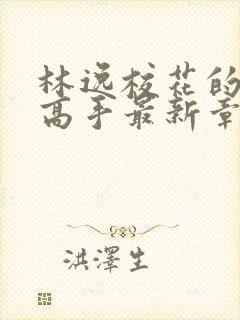 林逸校花的
高手最新章
洪澤生